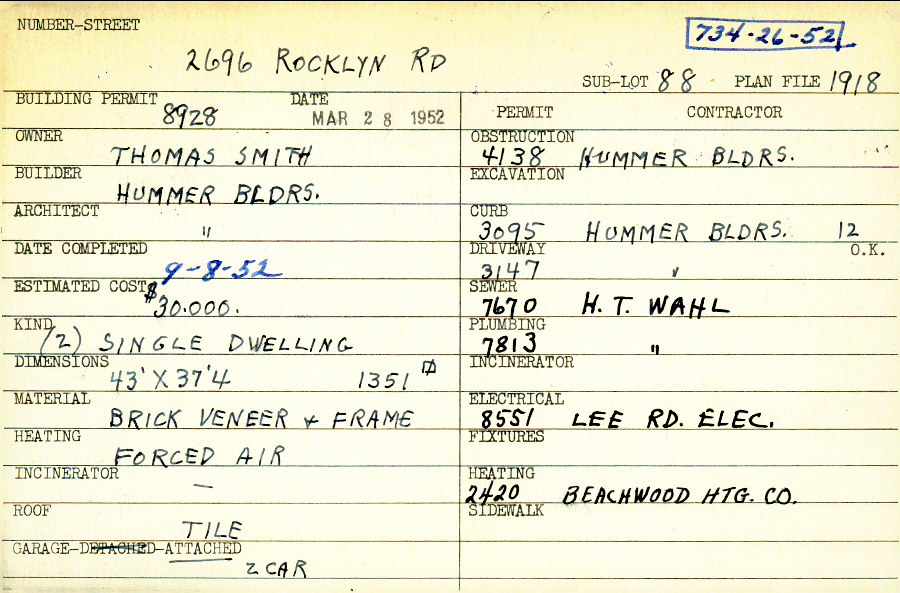 NUMBER-STREET
734-26-52
2696 ROCKLYN RD
SUB-LOT 88 PLAN FILE 1918
BUILDING PERMIT DATE
8928 MAR 28 1952
PERMIT CONTRACTOR
OWNER
THOMAS SMITH
BUILDER
HUMMER BLDRS.
ARCHITECT
"
DATE COMPLETED
9-8-52
ESTIMATED COST
$30.000.
KIND
(2) SINGLE DWELLING
DIMENSIONS
43' X 37'4 1351
MATERIAL
BRICK VENEER + FRAME
HEATING
FORCED AIR
INCINERATOR
—
ROOF
TILE
GARAGE-DETACHED-ATTACHED
2 CAR
OBSTRUCTION
4138 HUMMER BLDRS.
EXCAVATION
CURB
3095 HUMMER BLDRS. 12
DRIVEWAY O.K.
3147 "
SEWER
7670 H.T. WAHL
PLUMBING
7813 "
INCINERATOR
ELECTRICAL
8551 LEE RD. ELEC.
FIXTURES
HEATING
2420 BEACHWOOD HTG. CO.
SIDEWALK